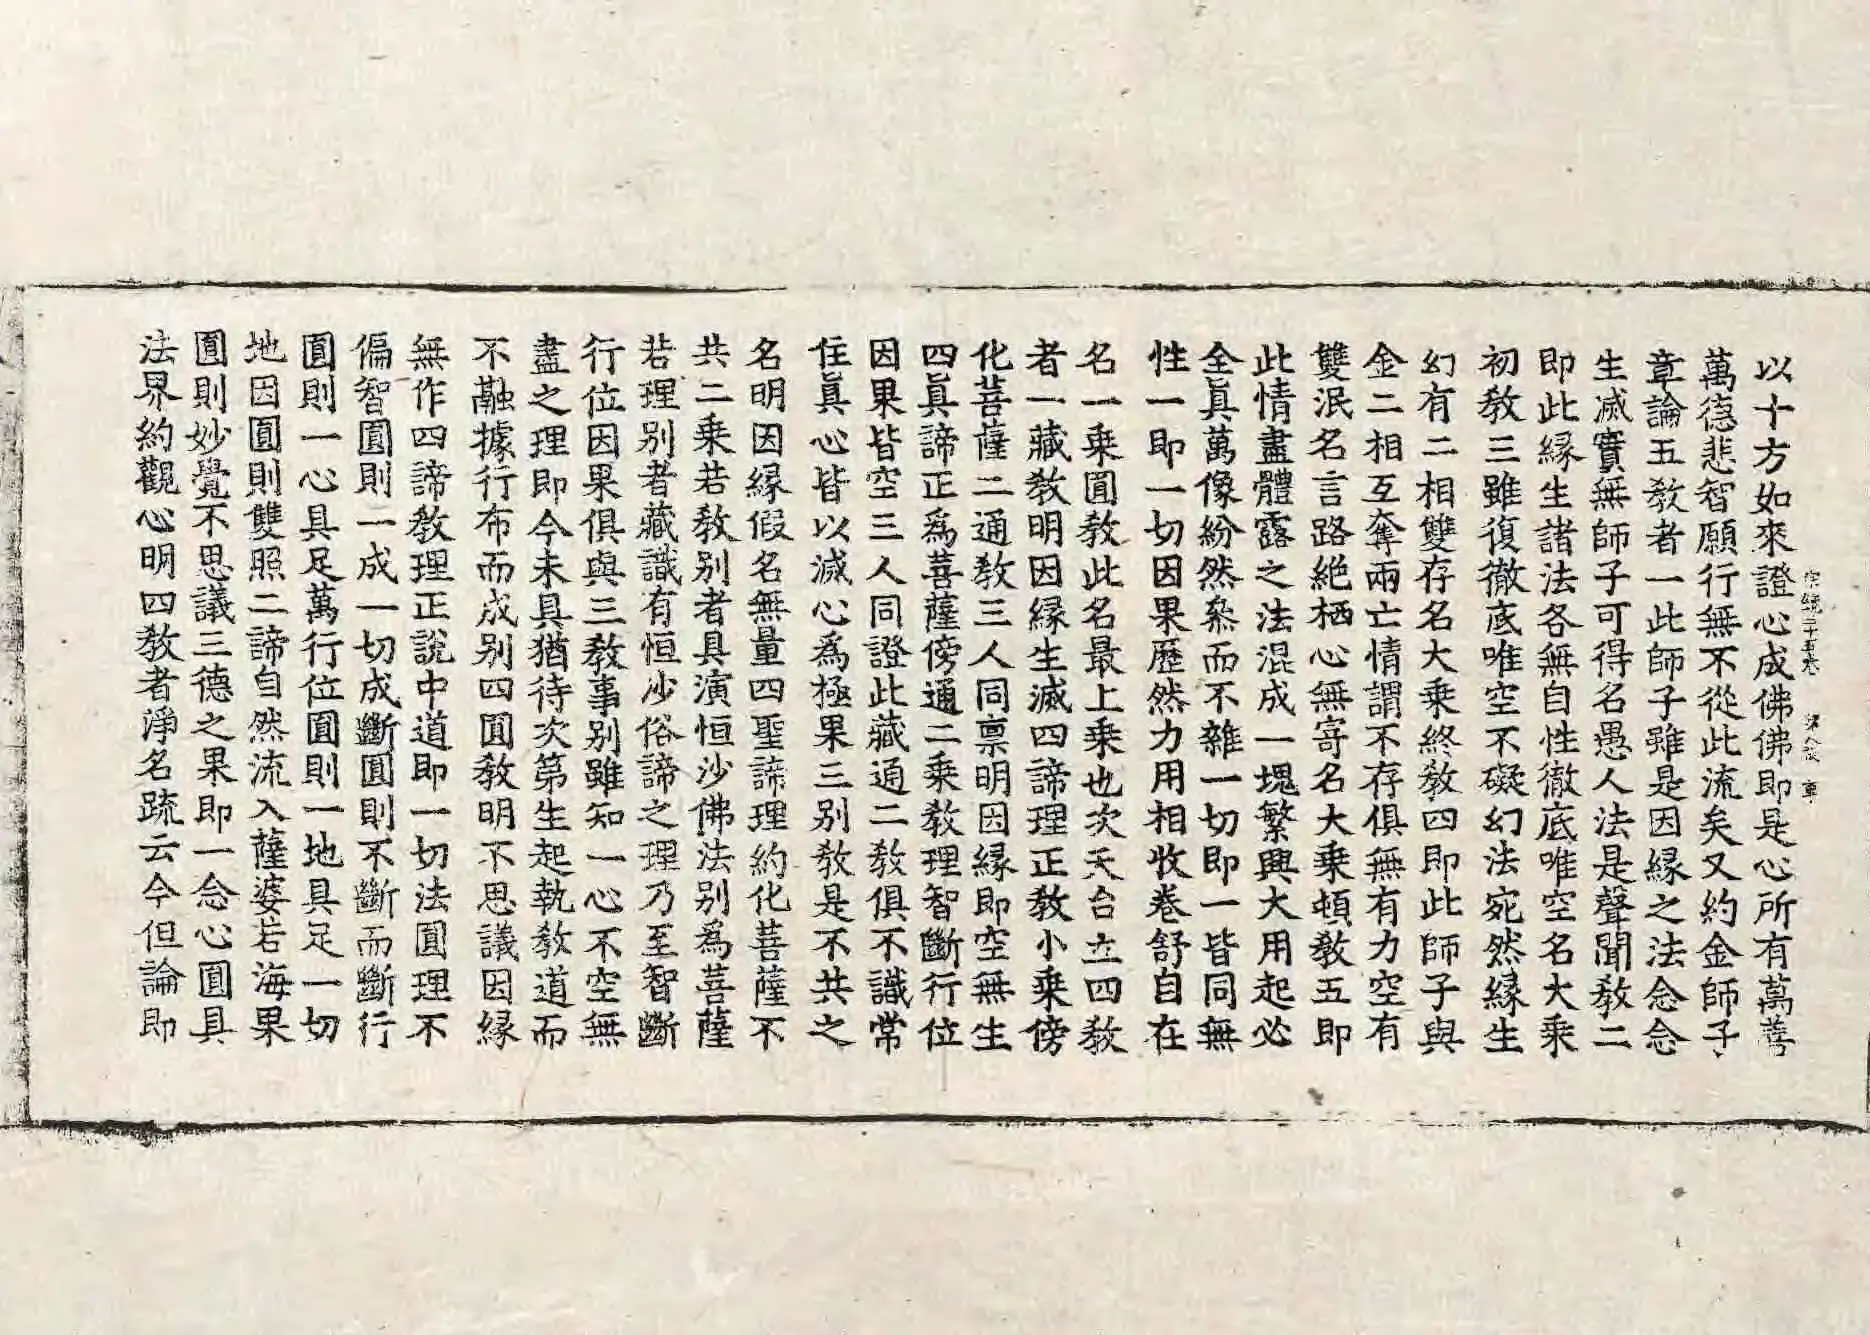 宗鏡三十五卷 第八張 車
以十方如來證心成佛佛即是心所有萬善
萬德悲智願行無不從此流矣又約金師子
章論五教者一此師子雖是因緣之法念念
生滅實無師子可得名愚人法是聲聞教二
即此緣生諸法各無自性徹底唯空名大乘
初教三雖復徹底唯空不礙幻法宛然緣生
幻有二相雙存名大乘終教四即此師子與
金二相互奪兩亡情謂不存俱無有力空有
雙泯名言路絕栖心無寄名大乘頓教五即
此情盡體露之法混成一塊繁興大用起必
全眞萬像紛然叅而不雜一切即一皆同無
性一即一切因果歷然力用相收卷舒自在
名一乘圓教此名最上乘也次天台立四教
者一藏教明因緣生滅四諦理正教小乘傍
化菩薩二通教三人同稟明因緣即空無生
四眞諦正爲菩薩傍通二乘教理智斷行位
因果皆空三人同證此藏通二教俱不識常
住眞心皆以滅心爲極果三別教是不共之
名明因緣假名無量四聖諦理約化菩薩不
共二乘若教別者具演恒沙佛法別爲菩薩
若理別者藏識有恒沙俗諦之理乃至智斷
行位因果俱與三教事別雖知一心不空無
盡之理即今未具猶待次第生起執教道而
不融據行布而成別四圓教明不思議因緣
無作四諦教理正說中道即一切法圓理不
偏智圓則一成一切成斷圓則不斷而斷行
圓則一心具足萬行位圓則一地具足一切
地因圓則雙照二諦自然流入薩婆若海果
圓則妙覺不思議三德之果即一念心圓具
法界約觀心明四教者淨名疏云今但論即